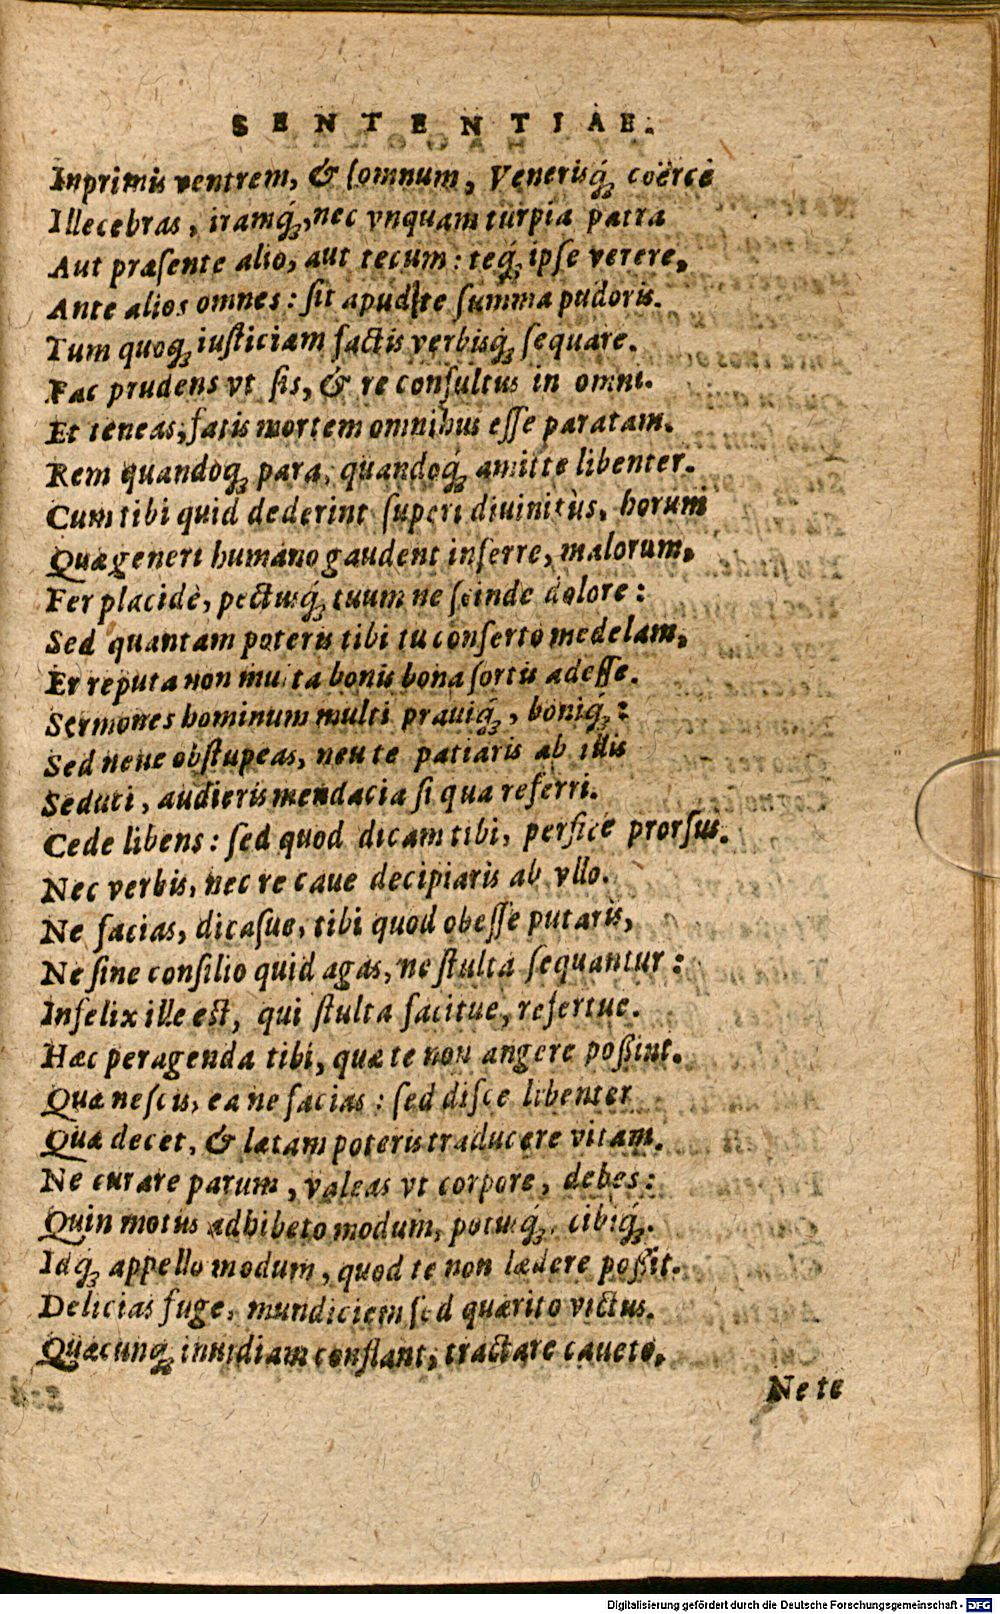 SENTENTIAE.
Inprimis ventrem, & ſomnum, Venerisq́ꝫ coërce
Illecebras, iramq́ꝫ, nec vnquam turpia patra
Aut præſente alio, aut tecum: teq́ꝫ ipſe verere,
Ante alios omnes: ſit apud te ſumma pudoris.
Tum quoqꝫ iuſticiam factis verbisq́ꝫ ſequare.
Fac prudens vt ſis, & re conſultus in omni.
Et teneas, fatis mortem omnibus eſſe paratam.
Rem quandoqꝫ para, quandoq́ꝫ amitte libenter.
Cum tibi quid dederint ſuperi diuinitùs, horum
Quæ generi humano gaudent inferre, malorum,
Fer placidè, pectusq́ꝫ tuum ne ſcinde dolore:
Sed quantam poteris tibi tu conferto medelam,
Et reputa non multa bonis bona ſortis adeſſe.
Sermones hominum multi prauiq́ꝫ, boniq́ꝫ:
Sed neue obſtupeas, neu te patiaris ab illis
Seduci, audieris mendacia ſi qua referri.
Cede libens: ſed quod dicam tibi, perfice prorſus.
Nec verbis, nec re caue decipiaris ab vllo.
Ne facias, dicaſue, tibi quod obeſſe putaris,
Ne ſine conſilio quid agas, ne ſtulta ſequantur:
Infelix ille eſt, qui ſtulta facitue, refertue.
Hæc peragenda tibi, quæ te non angere poßint.
Quæ neſcis, ea ne facias: ſed diſce libenter
Quæ decet, & lætam poteris traducere vitam.
Ne curare parum, valeas vt corpore, debes:
Quin motus adhibeto modum, potusq́ꝫ, cibiq́ꝫ.
Idq́ꝫ appello modum, quod te non lædere poßit.
Delicias fuge, mundiciem ſed quærito victus.
Quæcunqꝫ inuidiam conflant, tractare caueto,
Ne te
Digitalisierung gefördert durch die Deutsche Forschungsgemeinschaft - DFG